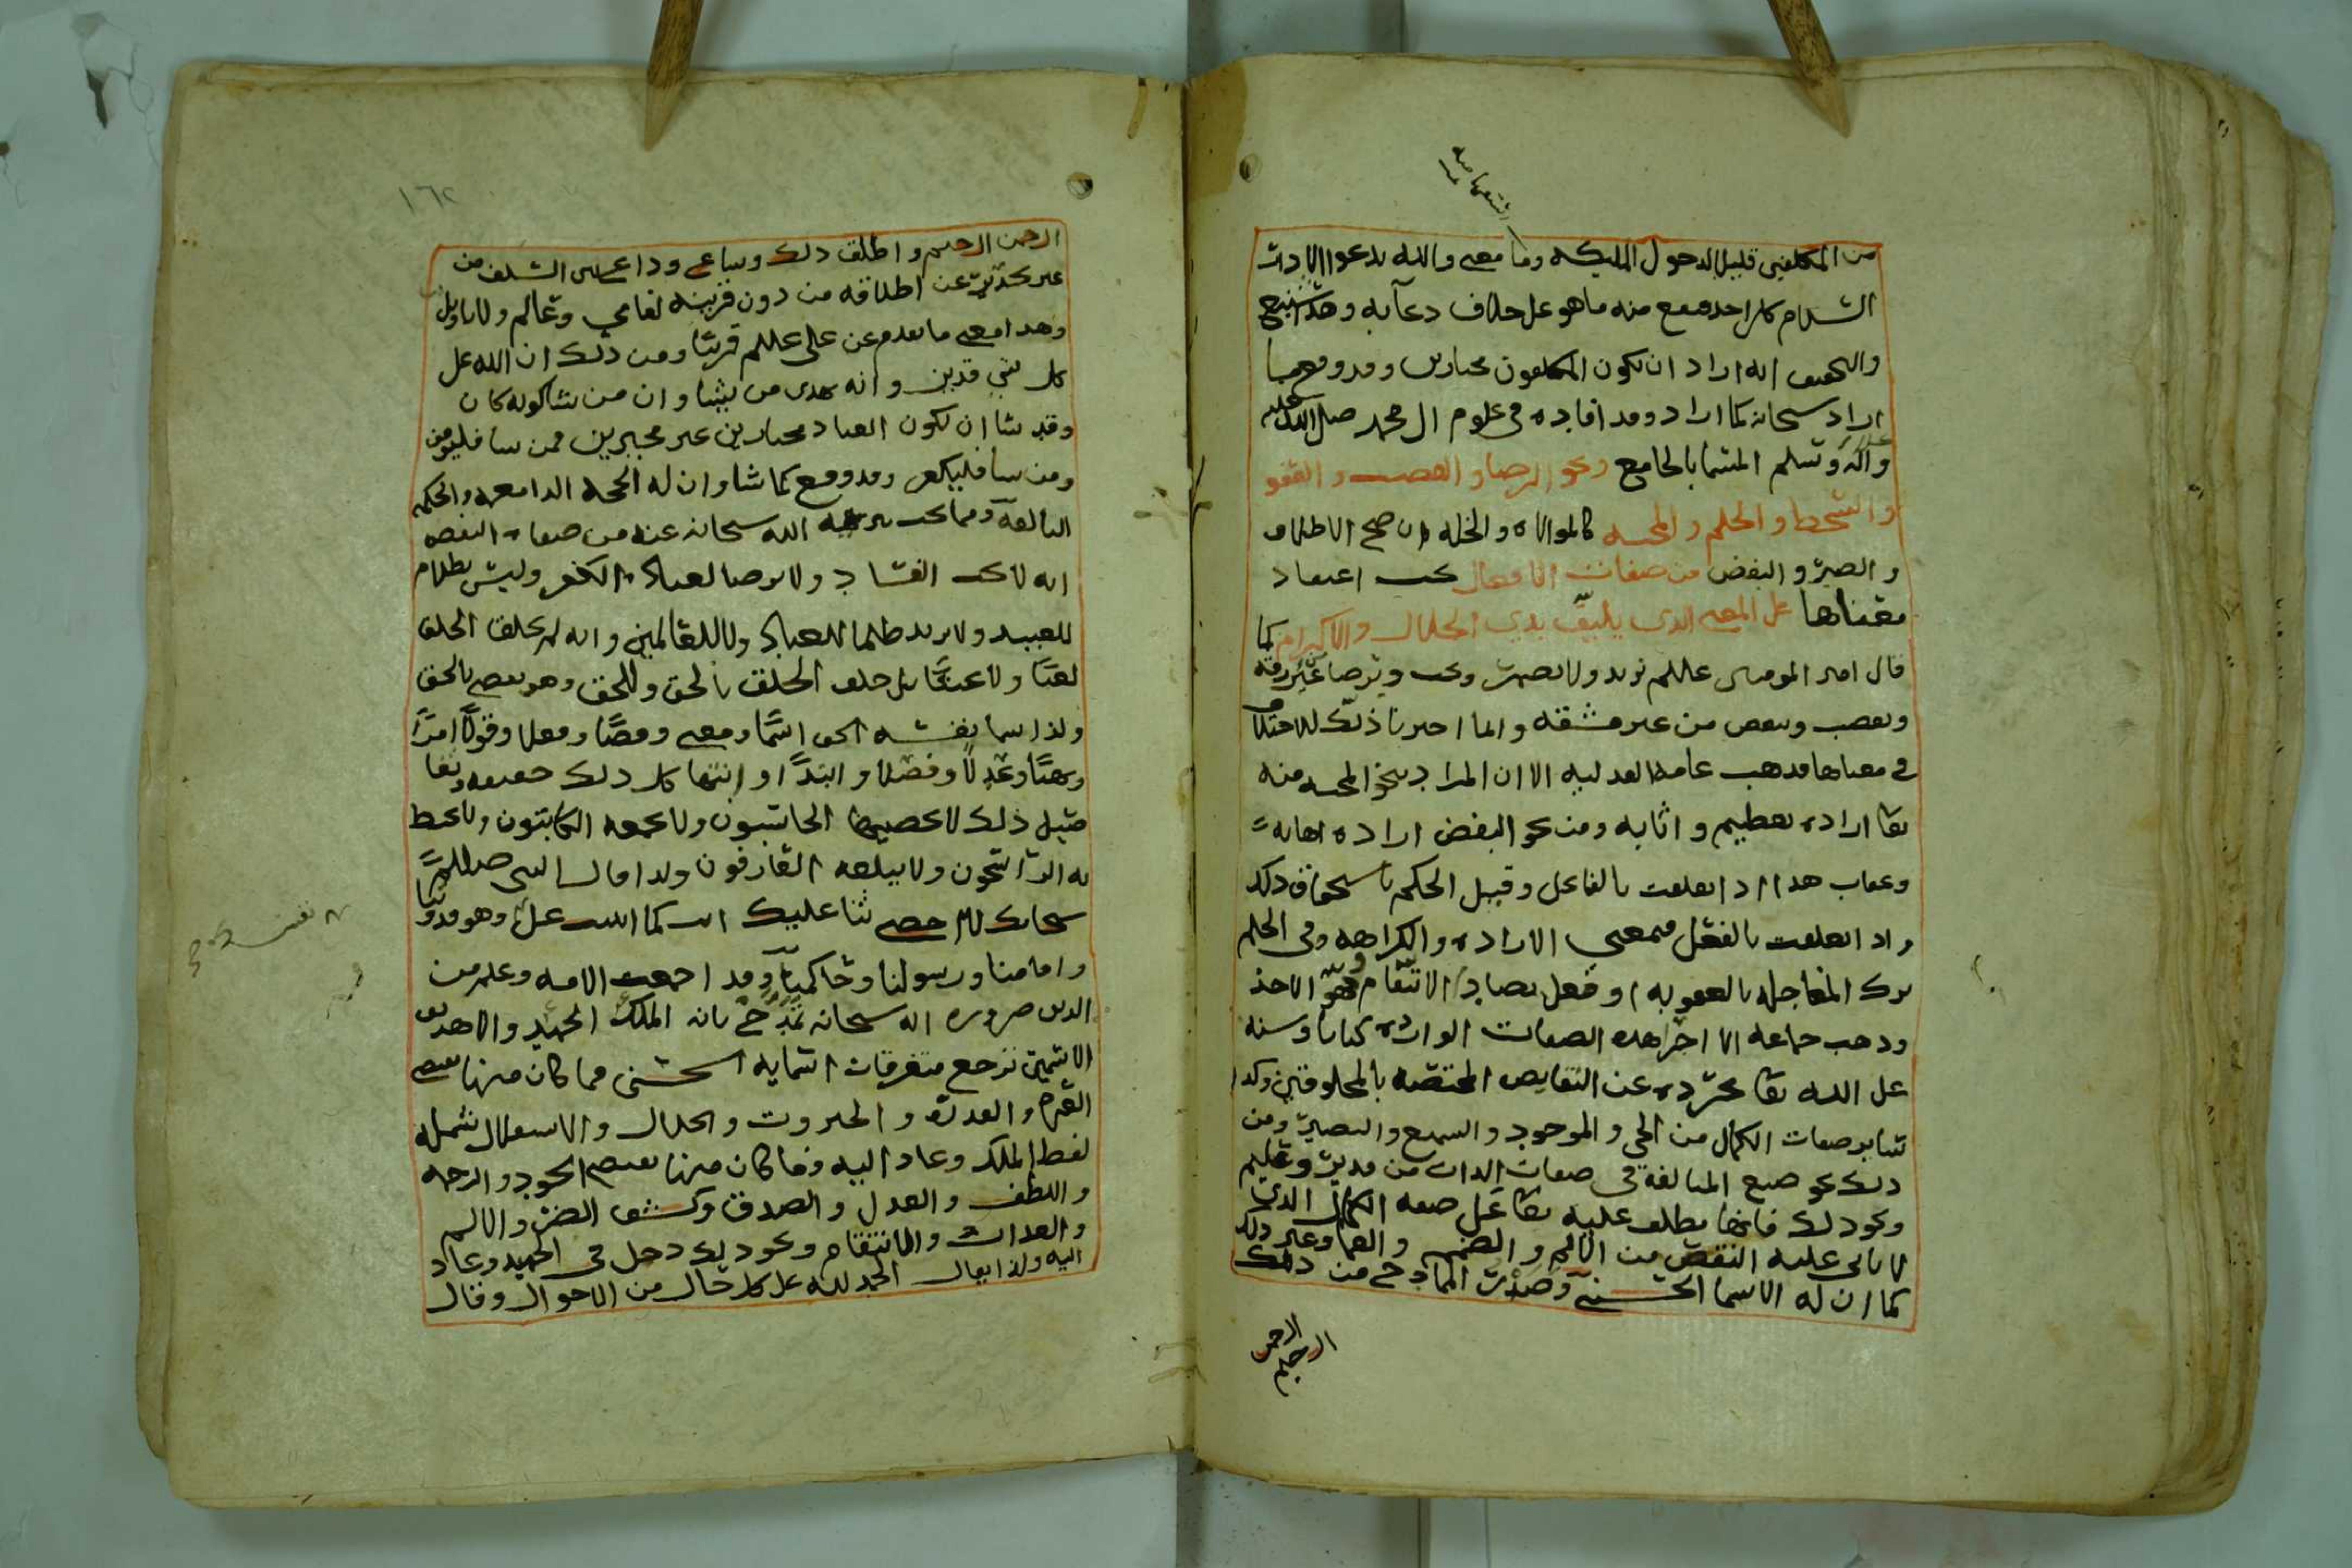 من المكلفين قليل لدحول المليكه وما معنى والله يدعوا الا دار
السلام كل احد فيمتنع منه ما هو على خلاف دعآيه وهذا شنيع
والتحقيق انه اراد ان يكون المكلفون مختارين وقد وقع ما
اراد سبحانه كما اراد وقد افاده في علوم ال محمد صلى الله عليه
وآله وسلم المسما بالجامع ونحو الرضا والغضب والعفو
والسخط والحلم والمحبه كالموالاه والخله ان صح الاطلاق
والصبر والبغض من صفات الافعال يجب اعتقاد
معناها على المعنى الذي يليق بذي الجلال والاكرام كما
قال امير المومنين عللم يريد ولا يضمر ويحب ويرضا من غير رقه
ويغضب ويبغض من غير مشقه وانما اخبرنا ذلك للاختلاف
في معناها فذهب عامة العدليه الا ان المراد بنحو المحبه منه
تعا اراده تعظيم واثابه ومن نحو البغض اراده اهانه
وعقاب هذا اذ اتعلقت بالفاعل وقبل الحكم باستحقاق ذلك
واذ اتعلقت بالفعل فبمعنى الاراده والكراهه وفي الحلم
ترك المعاجله بالعقوبه او فعل يضاد الانتقام وهو الاخذ
وذهب جماعه الا اجرا هذه الصفات الوارده كتابا وسنه
على الله تعا مجرده عن النقايص المختصه بالمخلوقين وكذا
سايرصفات الكمال من الحي والموجود والسميع والبصير ومن
ذلك نحو صيغ المبالغة في صفات الذات من قدير وعليم
ونحو ذلك فانها يطلق عليه تعا على صفه الكمال الذي
لا ياتى عليه النقص من الالم والصمم والعما وغير ذلك
كما ان له الاسما الحسنى وصدرت المادح من ذلك
الرحمن
الرحيم
١٦٢
الرحمن الرحيم واطلق ذلك وشاع وذاع بين السلف من
غير تحذير عن اطلاقه من دون قرينه لعامي وعالم ولا تاويل
وهذا معنى ما تقدم عن علي عللم قريبا ومن ذلك ان الله على
كل شي قدير وانه يهدى من يشا وان من شا كونه كان
وقد شا ان يكون العباد مختارين غير مجبرين فمن شا فليومن
ومن شا فليكفر وقد وقع كما شا وان له الحجه الدامغه والحكمه
البالغه ومما يجب تنزيه الله سبحانه عنه من صفات النقص
انه لا يحب الفساد ولا يرضا لعباده الكفر وليس بظلام
للعبيد ولا يريد ظلما للعباد ولا للعالمين وانه لم يخلق الخلق
لعبا ولا عبثا بل خلق الخلق بالحق وللحق وهو يقضي بالحق
ولذا سما نفسه الحق اسما ومعنى وقضا وفعلا وقولا امرا
ونهيا وعدلا وفضلا وابتدا وانتها كل ذلك حقيقه
قبل ذلك لا يحصيها الحاسبون ولا يجمعه الكاتبون ولا يحيط
به الراسخون ولا يبلغه العارفون ولذا قال النبي صللم
سبحانك لا احصي ثنا عليك انت كما اثنيت على وهو قدوتنا
وامامنا ورسولنا وحاكمنا وقد اجمعت الامه وعلم من
الدين ضروره انه سبحانه تمدح بانه الملك الحميد والا هذين
الاسمين ترجع متفرقات اسمايه الحسنى فما كان منها بمعنى
القهر والقدرة والجبروت والجلال والاستعلال شمله
لفظ الملك وعاد اليه وما كان منها بمعنى الجود والرحمه
واللطف والعدل والصدق وكشف الضر والالم
والعداب والانتقام ونحو ذلك دخل في الحميد وعاد
اليه ولذا يقال الحمد لله على كل حال من الاحوال وقال